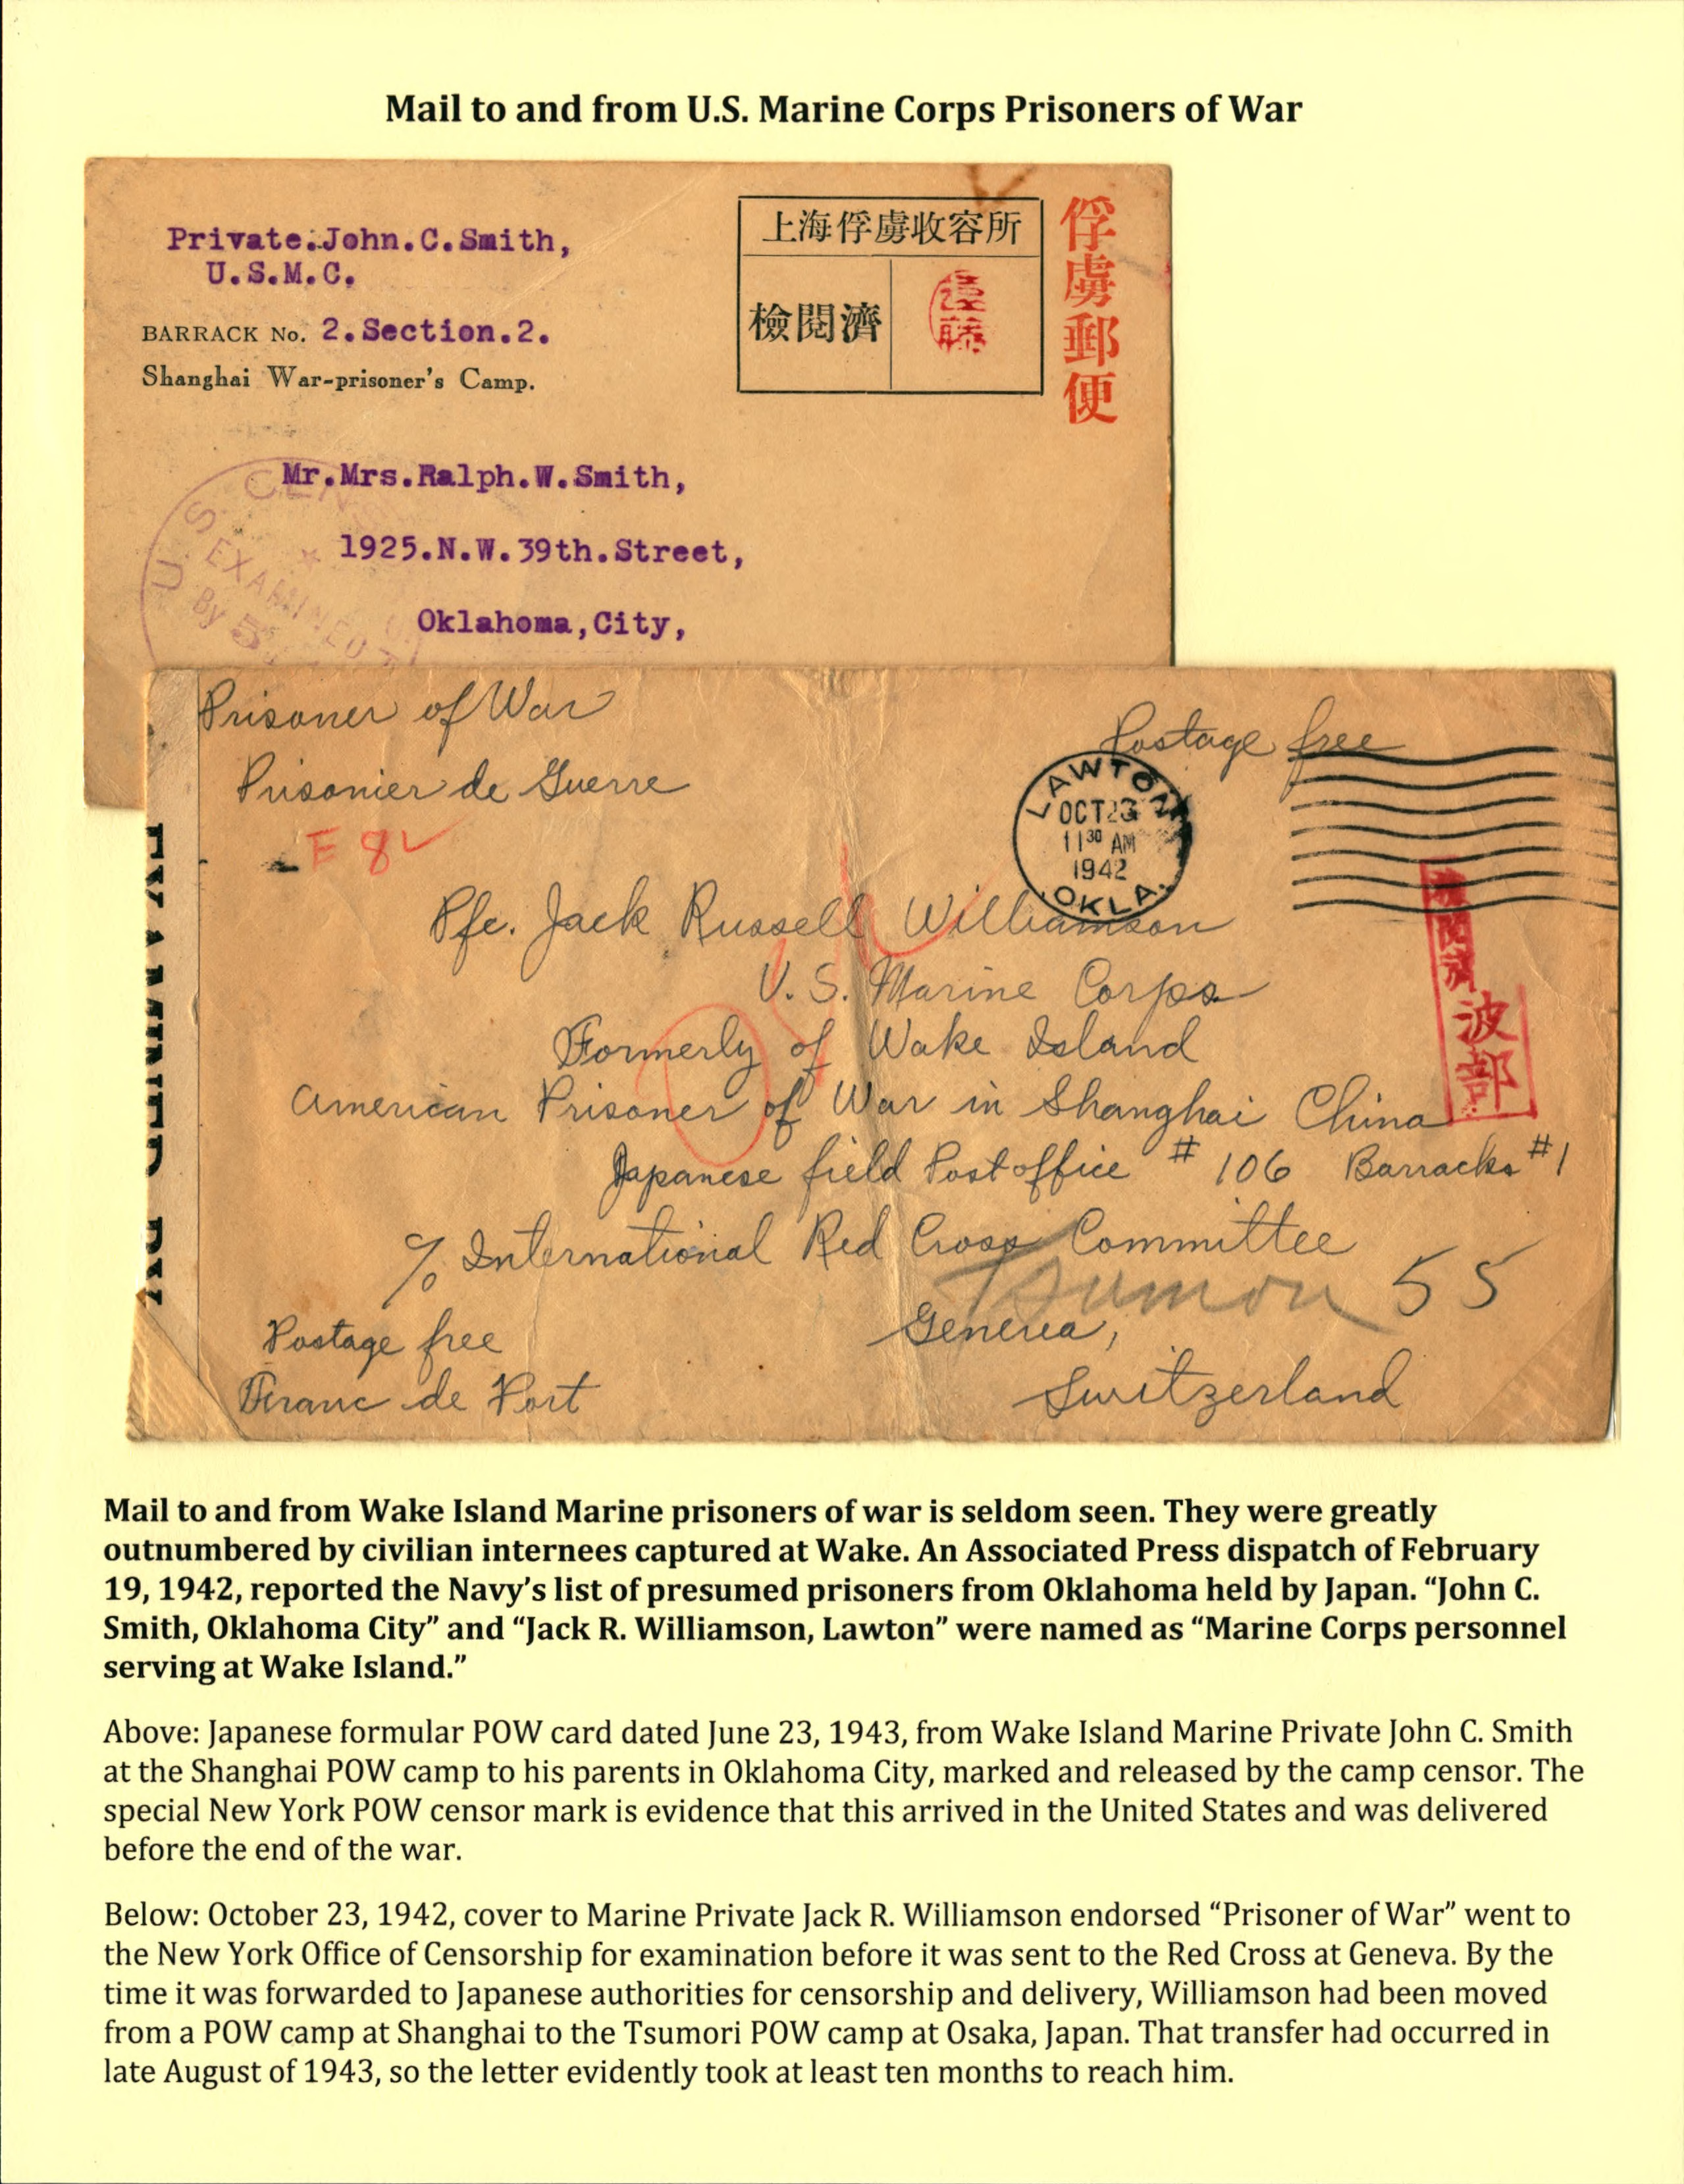 Mail to and from U.S. Marine Corps Prisoners of War
Private.John.C.Smith,
U.S.M.C.
BARRACK No. 2.Section.2.
Shanghai War-prisoner's Camp.
上海俘虜收容所
檢閱濟
遠藤
俘虜郵便
Mr.Mrs.Ralph.W.Smith,
1925.N.W.39th.Street,
Oklahoma,City,
U.S. CENS
EXAMINED
By 5
Prisoner of War
Prisonier de Guerre
Postage free
LAWTON
OCT 23
11 30 AM
1942
OKLA.
E 8
Pfc. Jack Russell Williamson
U.S. Marine Corps
Formerly of Wake Island
American Prisoner of War in Shanghai China
Japanese field Postoffice # 106 Barracks #1
% International Red Cross Committee
Tsumori 55
Geneva,
Switzerland
Postage free
Franc de Port
波部
EXAMINED BY
Mail to and from Wake Island Marine prisoners of war is seldom seen. They were greatly
outnumbered by civilian internees captured at Wake. An Associated Press dispatch of February
19, 1942, reported the Navy’s list of presumed prisoners from Oklahoma held by Japan. “John C.
Smith, Oklahoma City” and “Jack R. Williamson, Lawton” were named as “Marine Corps personnel
serving at Wake Island.”
Above: Japanese formular POW card dated June 23, 1943, from Wake Island Marine Private John C. Smith
at the Shanghai POW camp to his parents in Oklahoma City, marked and released by the camp censor. The
special New York POW censor mark is evidence that this arrived in the United States and was delivered
before the end of the war.
Below: October 23, 1942, cover to Marine Private Jack R. Williamson endorsed “Prisoner of War” went to
the New York Office of Censorship for examination before it was sent to the Red Cross at Geneva. By the
time it was forwarded to Japanese authorities for censorship and delivery, Williamson had been moved
from a POW camp at Shanghai to the Tsumori POW camp at Osaka, Japan. That transfer had occurred in
late August of 1943, so the letter evidently took at least ten months to reach him.